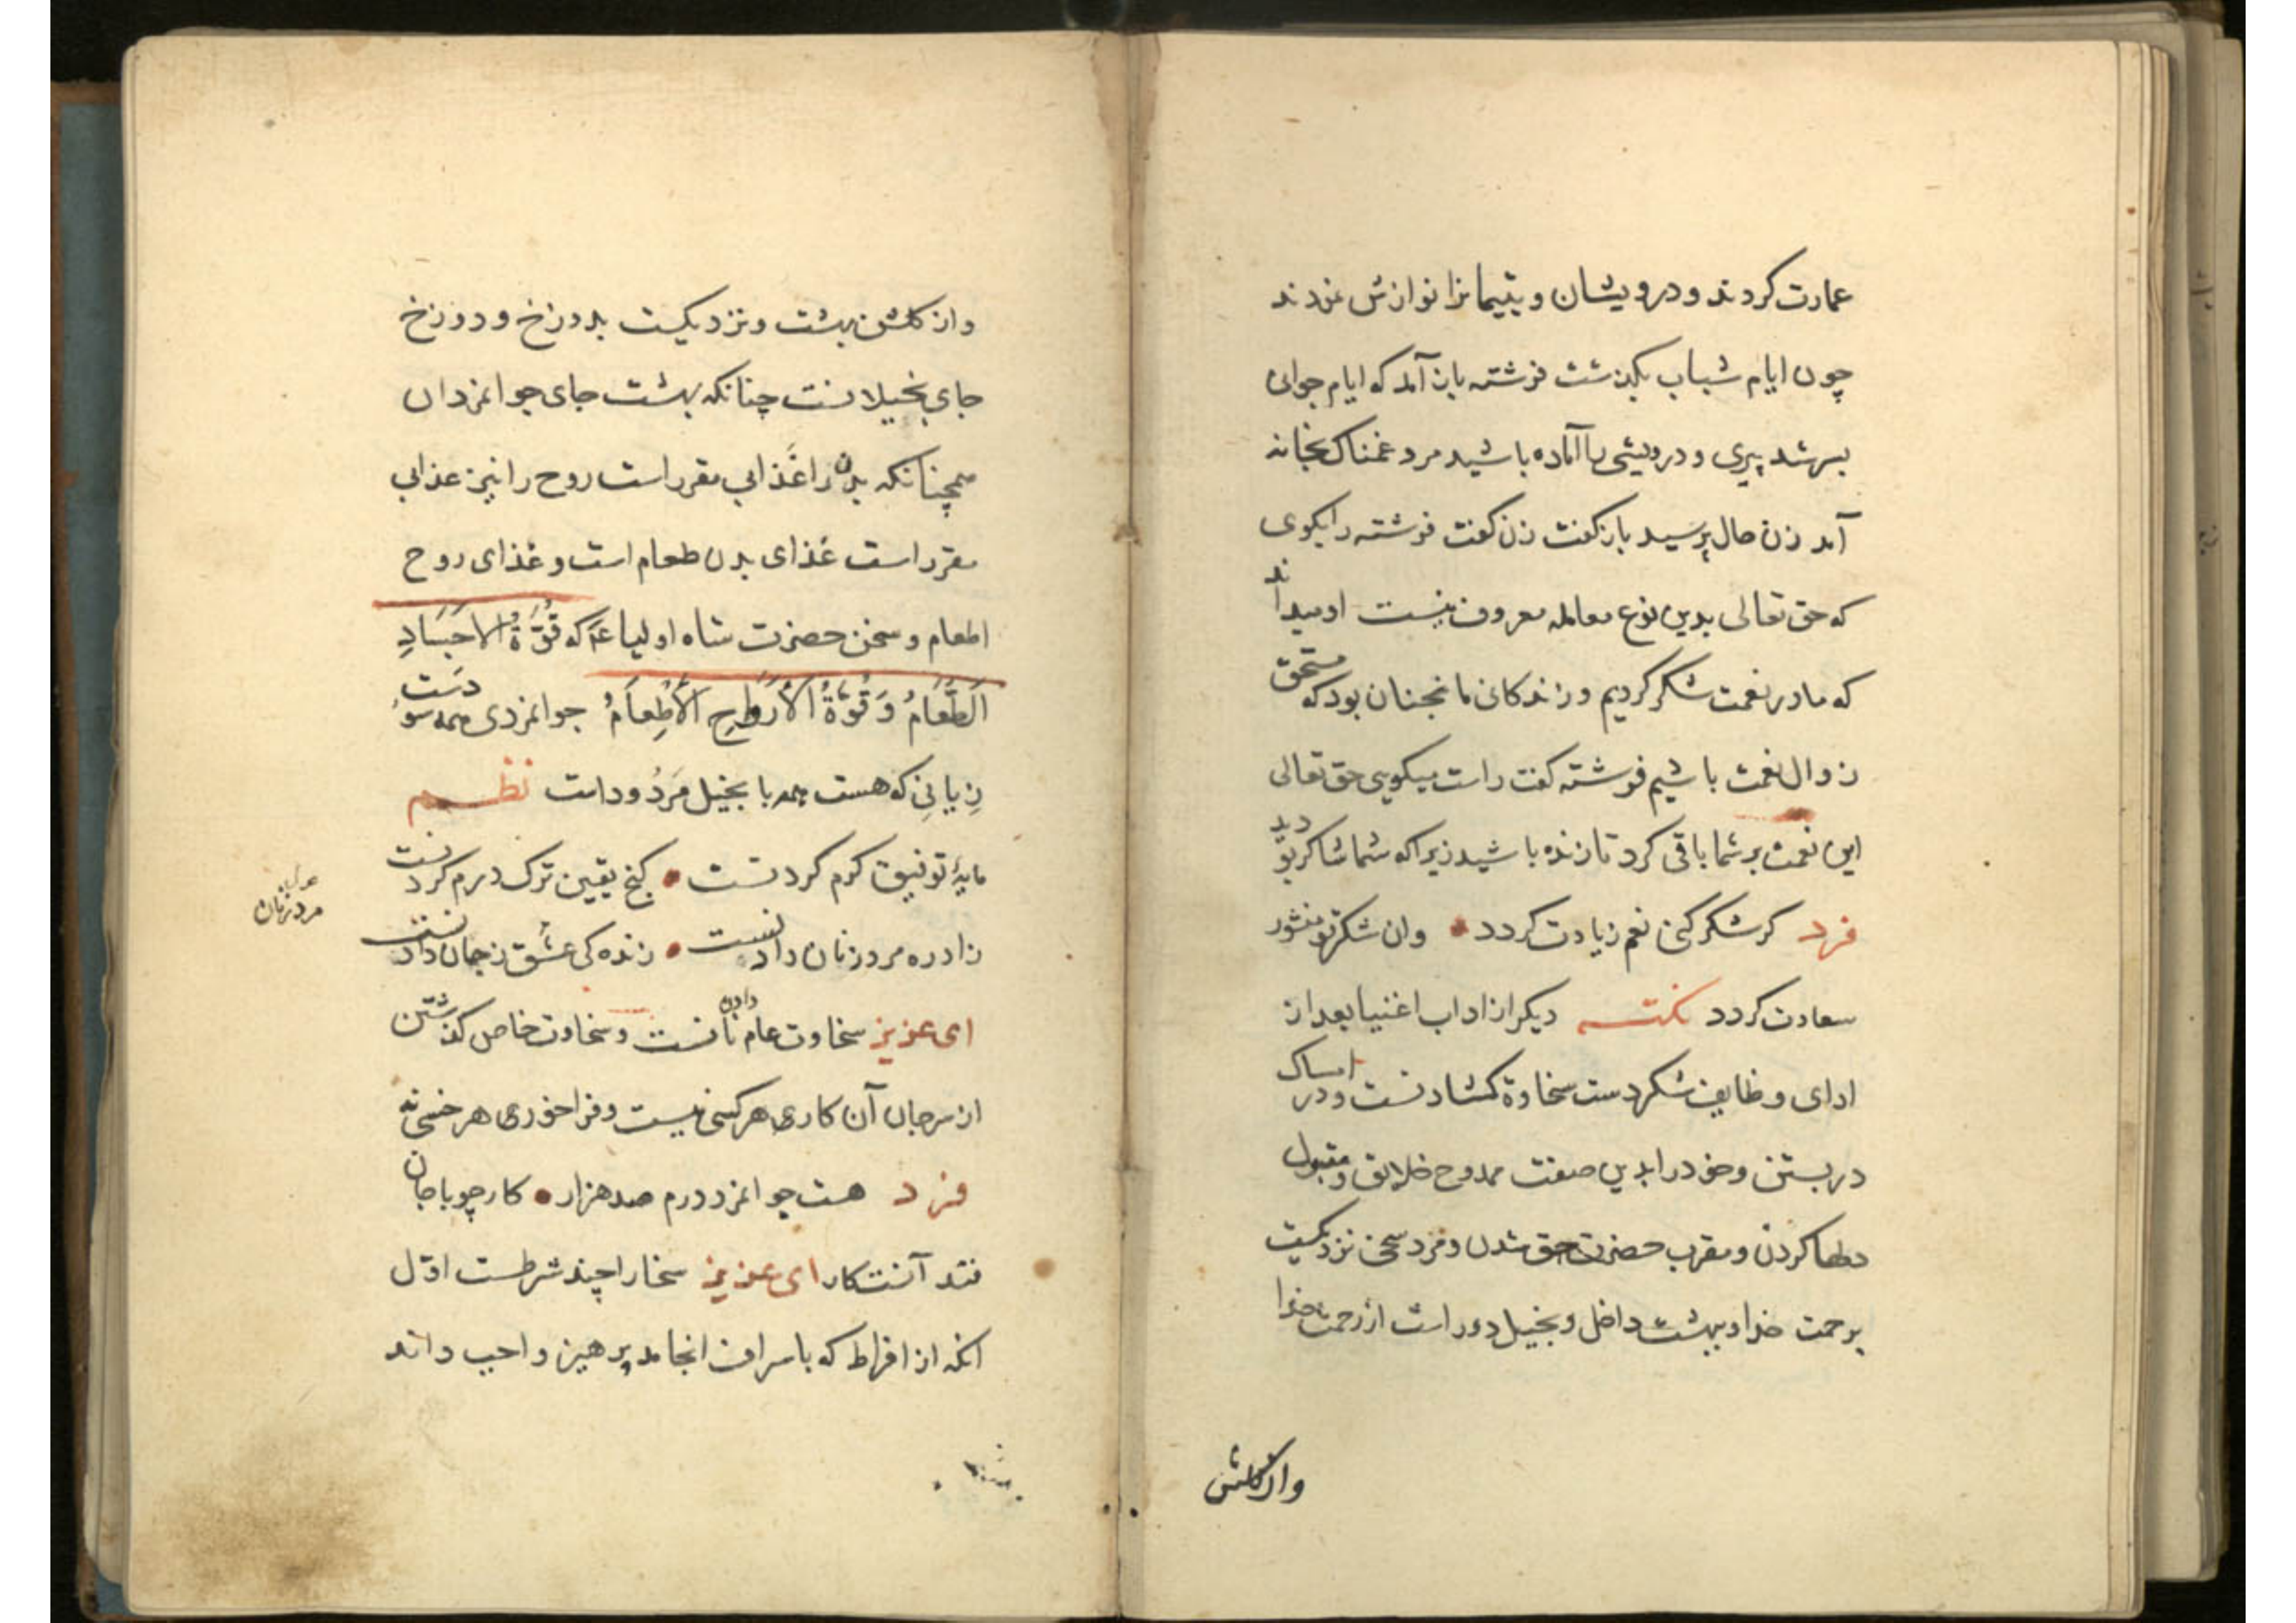 عمارت کردند و درویشان و یتیمانرا نوازش نمودند
چون ایام شباب بکذشت فرشته باز آمد که ایام جوانی
بسر شد پیری و درویشی را آماده باشید مرد غمناک بخانه
آمد زن حال پرسید باز کفت زن کفت فرشته را بکوی
که حق تعالی بدین نوع معامله معروف نیست او میداند
که ما در نعمت شکر کردیم و زندکانی ما نجنان بود که مستحق
زوال نعمت باشیم فرشته کفت راست میکویی حق تعالی
این نعمت بر شما باقی کرد تا زنده باشید زیرا که شما شاکر بودید
فرد کر شکر کنی نعم زیادت کردد • وان شکر تو منشور
سعادت کردد نکته دیکر از اداب اغنیا بعد از
ادای وظایف شکر دست سخاوة کشادنست و در امساک
در بستن و خود را بدین صفت ممدوح خلایق و مقبول
دلها کردن و مقرب حضرت حق شدن و مرد سخی نزدیکست
برحمت خدا و ببهشت داخل و بخیل دور است از رحمت خدا
واز کلشن
واز کلشن بهشت و نزدیکست بدوزخ و دوزخ
جای بخیلانست چنانکه بهشت جای جوانمردان
همچنانکه بدن را غذایی مقرر است روح را نیز غذایی
مقرر است غذای بدن طعام است و غذای روح
اطعام و سخن حضرت شاه اولیا ع‍ م که قُوَّةُ الاَجسَادِ
اَلطَّعَامُ وَ قُوَّةُ الْأَرْوَاحِ الْاَطِعَامُ جوانمردی همه سو دست
زیانی که هست همه با بخیل مردود است نظم
مایۀ توفیق کرم کردنست • کنج یقین ترک درم کردنست
زاد ره مرد زنان دادنست • زنده کی عشق ز جان دادنست
مرد زنان
ای عزیز سخاوت عام نان دادنست و سخاوت خاص کذشتن
از سر جان آن کاری هر کسی نیست و فراخوری هر خسی نه
فرد هست جوانمرد درم صد هزار • کار چو با جان
فتد آنست کار ای عزیز سخا را چند شرطست اوّل
انکه از افراط که باسراف انجامد پرهیز واجب داند